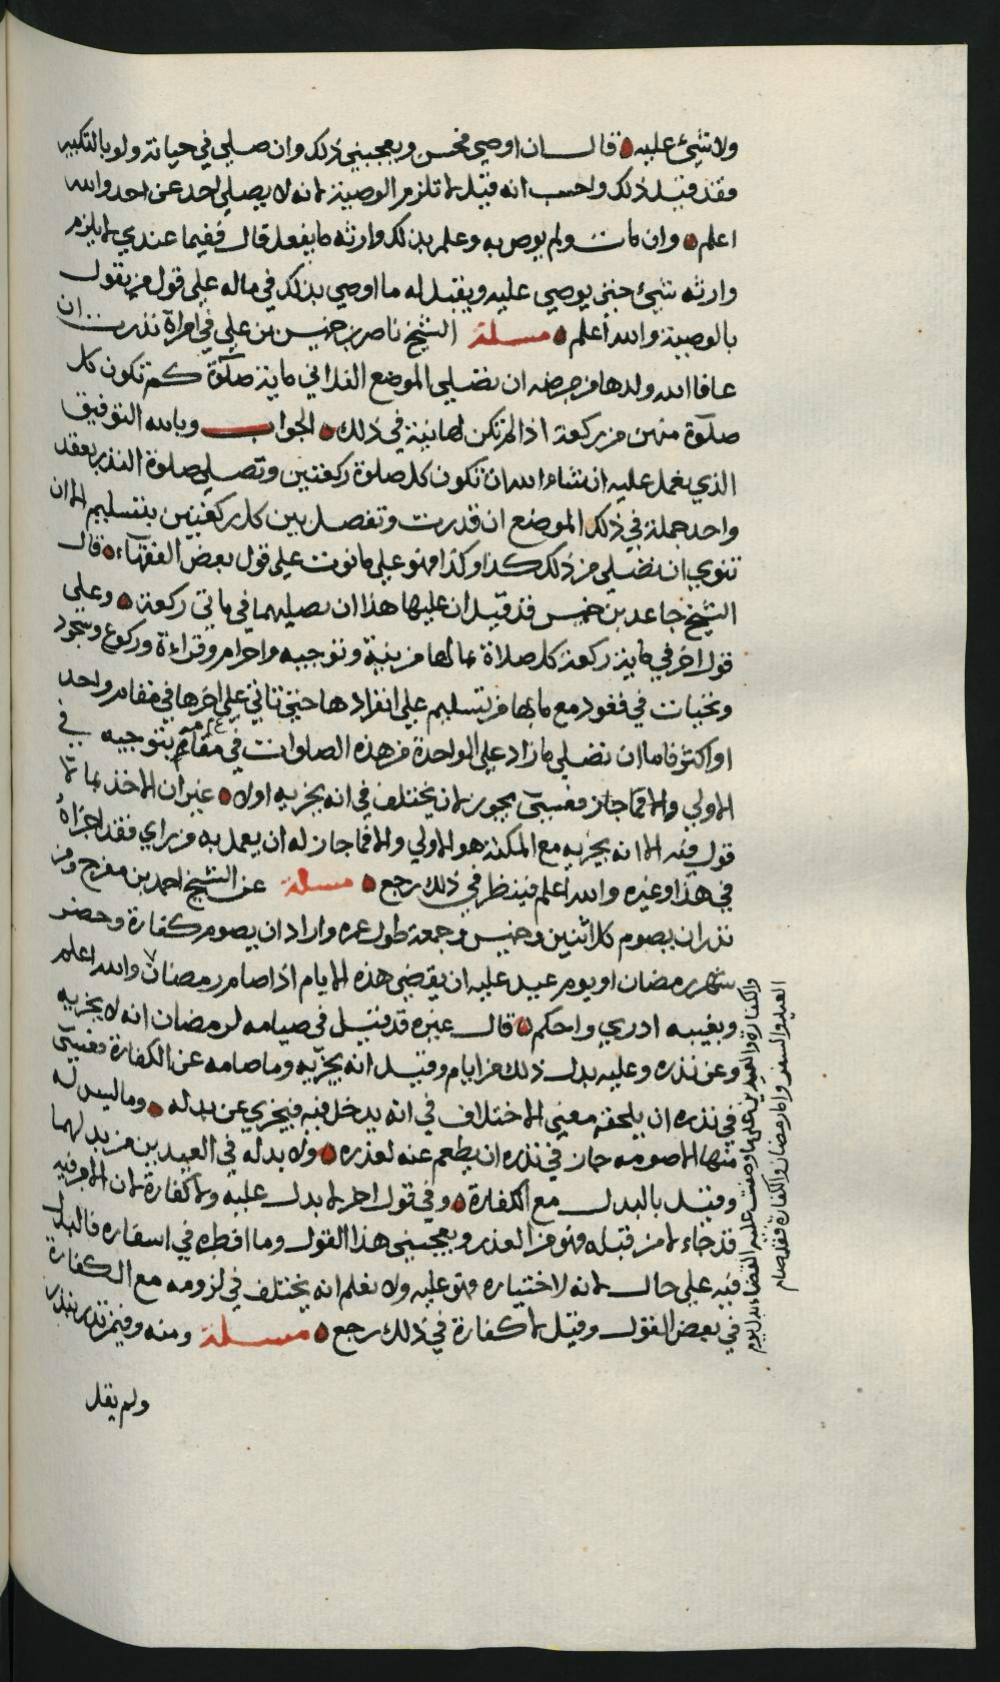 ولا شيء عليه قال ان اوصي فحسن ويعجبني ذلك وان صلي في حياته ولو بالتكبير
فقد قيل ذلك واحسب انه قيل لا تلزم الوصية لانه لا يصلي احد عن احد والله
اعلم وان مات ولم يوص به وعلم بذلك وارثه ما يفعل قال ففيما عندي لا يلزم
وارثه شيئ حتى يوصي عليه ويقبل له ما اوصي بذلك في ماله على قول من يقول
بالوصية والله أعلم مسئلة الشيخ ناصر بن خميس بن علي في امرأة نذرت ان
عافا الله ولدها من مرضه ان تصلي الموضع الفلاني ماية صلوة كم تكون كل
صلوة منهن من ركعة اذا لم تكن لها نية في ذلك الجواب وبالله التوفيق
الذي نعمل عليه ان شاء الله ان تكون كل صلوة ركعتين وتصلي صلوة النذر بعقد
واحد جملة في ذلك الموضع ان قدرت وتفصل بين كل ركعتين بتسليم الا ان
تنوي ان تصلي من ذلك كذا وكذا فهو على ما نوت على قول بعض الفقهاء قال
الشيخ جاعد بن خميس قد قيل ان عليها هذا ان تصليهما في ماتي ركعة وعلى
قول اخر في ماية ركعة كل صلاة بما لها من نية وتوجيه واحرام وقراءة وركوع وسجود
وتحيات في قعود مع ما بها من تسليم على انفرادها حتى تاتي على اخرها في مقام واحد
او اكثر فاما ان تصلي ما زاد على الواحدة من هذه الصلوات في مقام بتوجيه في
الاولي والا فما جاز فعسى يجوز لان يختلف في انه يجزيه اولا غير ان الاخذ بما لا
قول فيه الا انه يجزيه مع المكنة هو الاولي والا فما جاز له ان يعمل به من راي فقد اجزأه
في هذا وغيره والله اعلم فينظر في ذلك رجع مسئلة عن الشيخ احمد بن مفرج ومن
نذر ان يصوم كل اثنين وخميس وجمعة طول عمره واراد ان يصوم كفارة وحضر
شهر رمضان او يوم عيد عليه ان يقضي هذه الايام اذا صام رمضان لا والله اعلم
وبغيبه ادري واحكم قال غيره قد قيل في صيامه لرمضان انه لا يجزيه
وعن نذره وعليه بدل ذلك من ايام وقيل انه يجزيه وما صامه عن الكفارة فعسى
في نذره ان يلحقه معني الاختلاف في انه يدخل فيه فيجزي عن بدله وما ليس له
منها الا صومه جاز في نذره ان يطعم عنه لعذره ولا بد له في العيدين من بدلهما
وقيل بالبدل مع الكفارة وفي قول اخر لا بدل عليه ولا كفارة لان الامر فيه
قد جاء لا من قبله فهو من العذر ويعجبني هذا القول وما افطره في اسفاره فالبدل
فيه على حال لانه لاختياره فهو عليه ولا نعلم انه يختلف في لزومه مع الكفارة
في بعض القول وقيل لا كفارة في ذلك رجع مسئلة ومنه وفيمن نذر بنذر
ولم يقل
والكفارة والعيدين على ما وصفت عليه القضاء بدل يوم
العيد والسفر والا رمضان والكفارة فقد صام